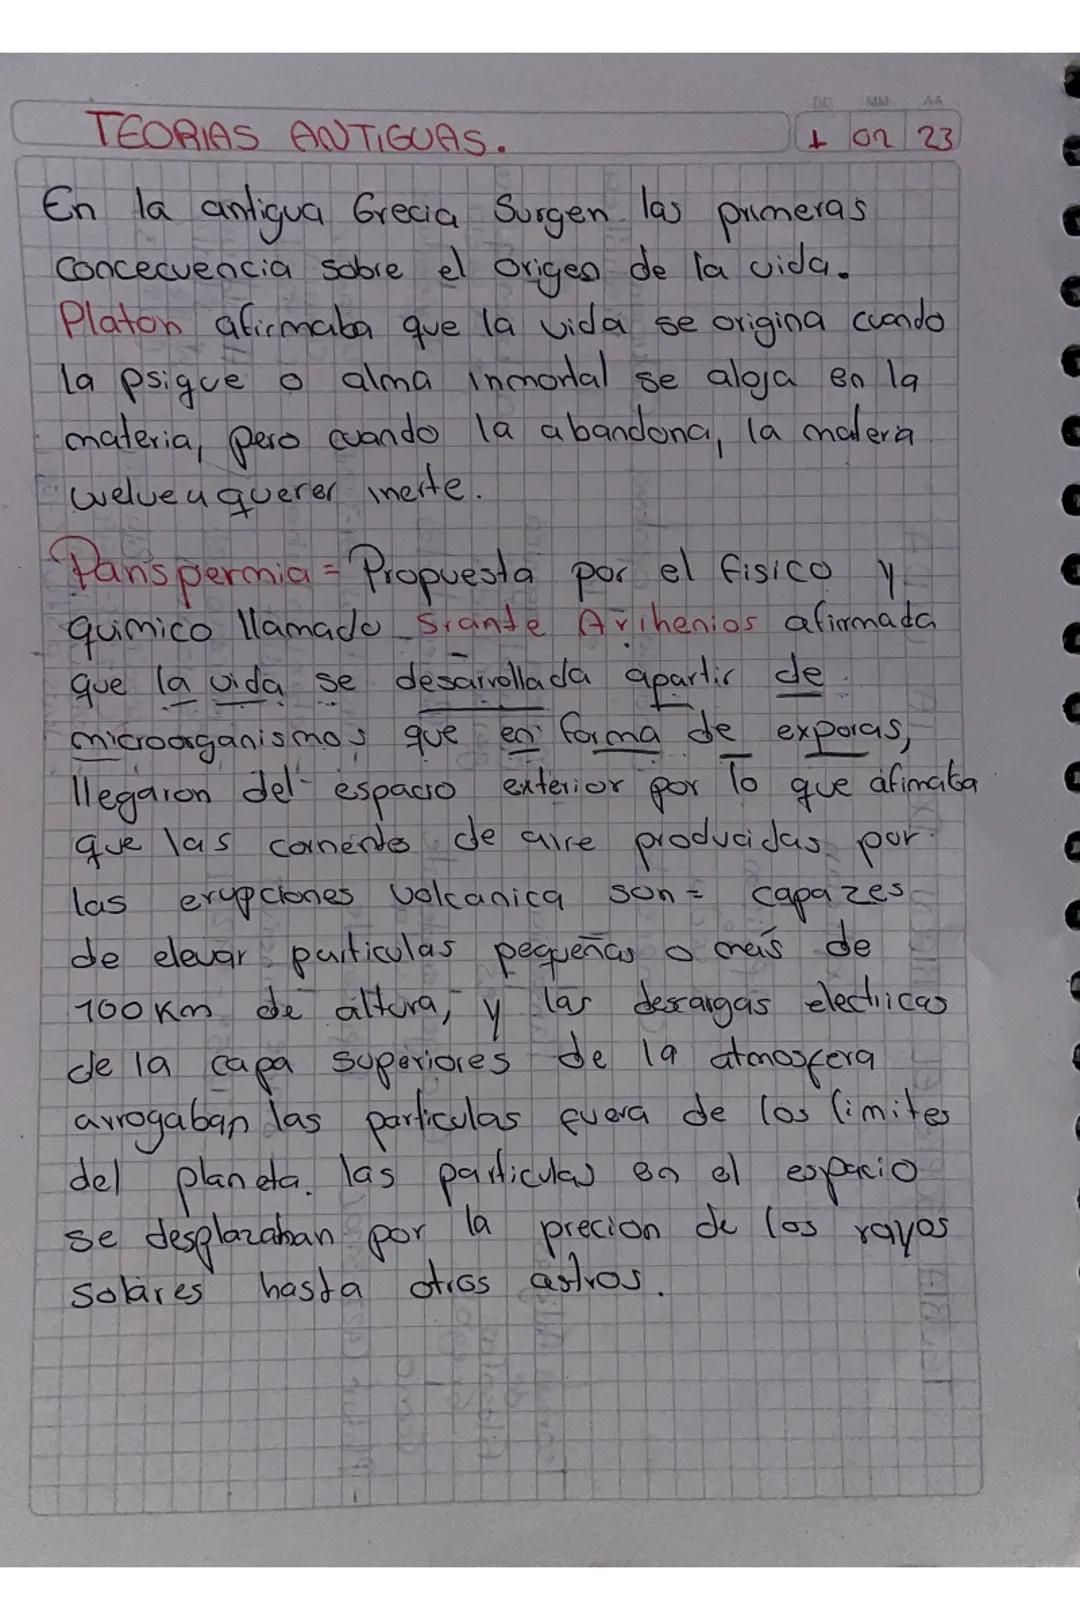 DD MM AA
TEORIAS ANTIGUAS. 1 02 23
En la antigua Grecia Surgen las primeras
concecuencia sobre el origen de la vida.
Platon afirmaba que la vida se origina cuando
la psigue o alma inmortal se aloja en la
materia, pero cuando la abandona, la materia
vuelve a querer inerte.
Panspermia = Propuesta por el fisico y
quimico llamado Srante Arihenios afirmada
que la vida se desarrollada apartir de
microorganismos que en forma de exporas,
llegaron del espacio exterior por lo que afimaba
que las corrientes de aire producidas por
las erupciones volcanica son = capazes
de elevar particulas pequeñas o mas de
100 Km de altura, y las descargas electricas
de la capa superiores de la atmosfera
arrogaban las particulas fuera de los limites
del planeta. las particulas en el espacio
se desplazaban por la precion de los rayos
solares hasta otros astros.